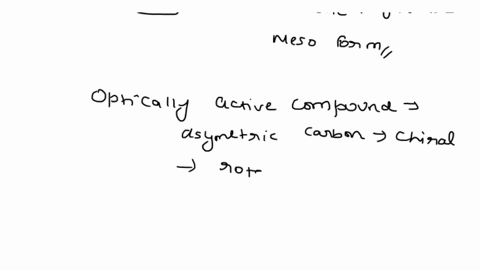 Meso Form
Optically active compound →
asymetric carbon → chiral
→ rot